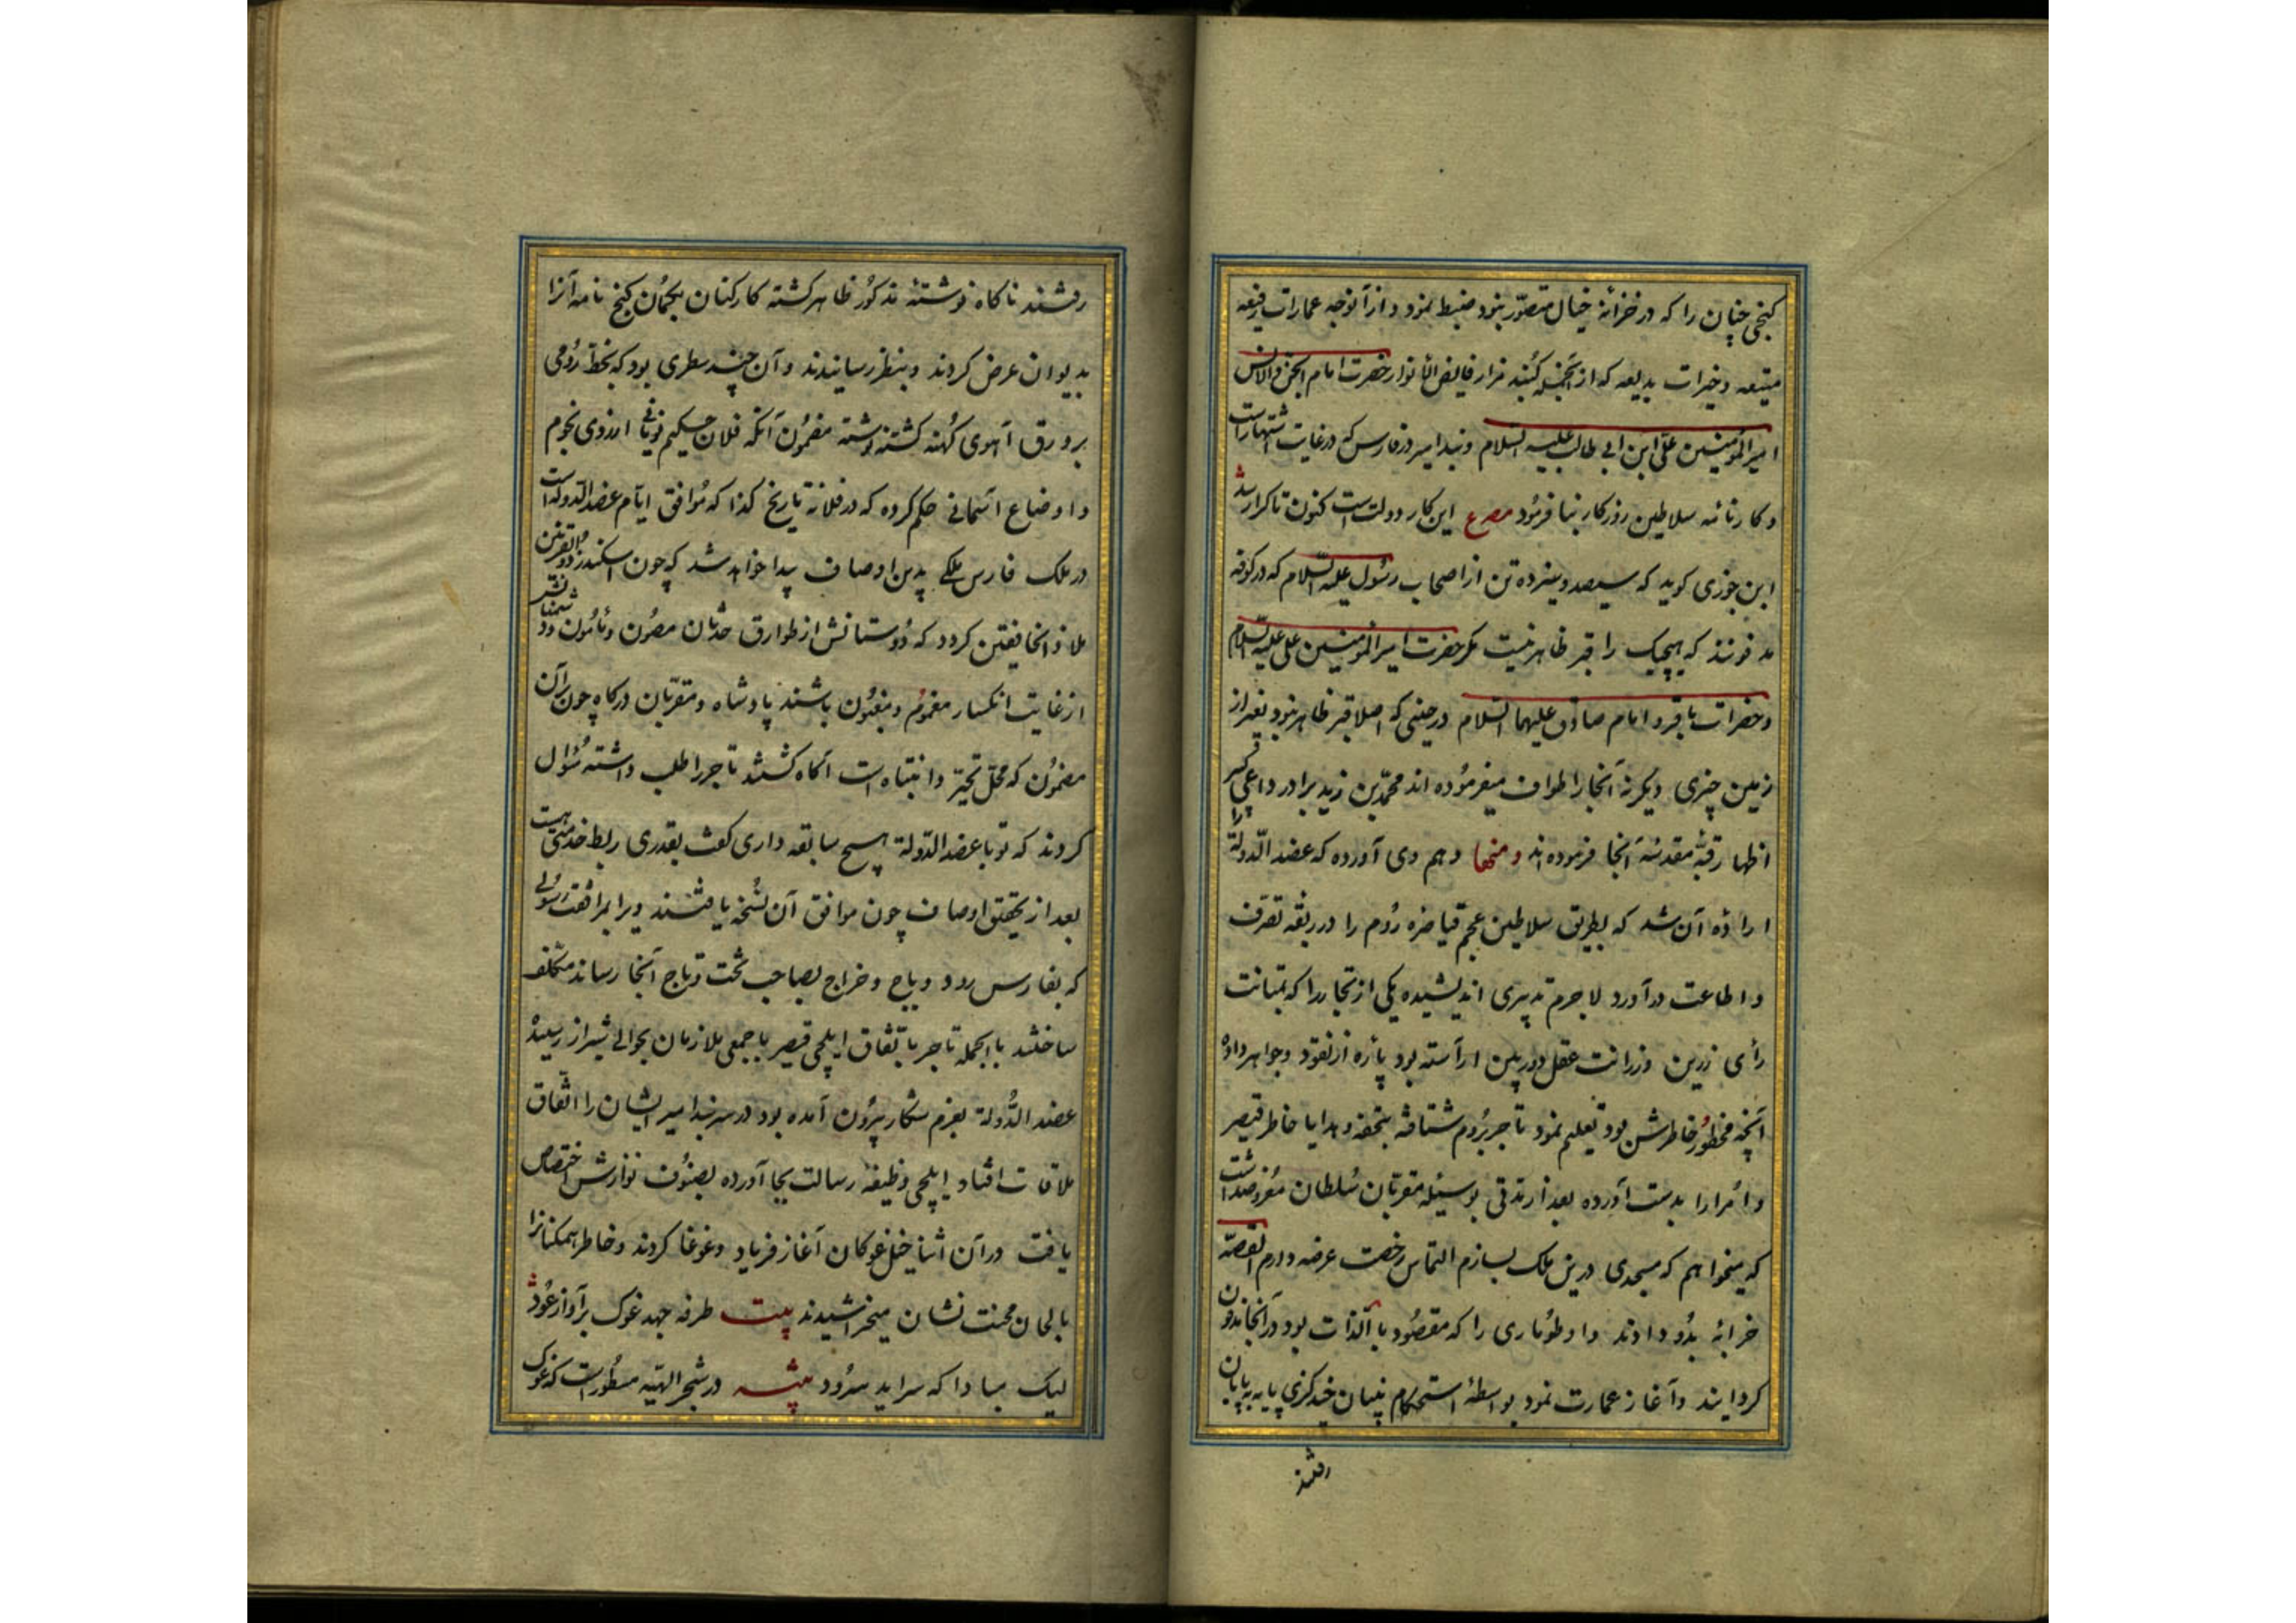 کنجی چنان را که در خزانهٔ خیال متصوّر نبود ضبط نمود و از آنوجه عمارات رفیعه
منیعه و خیرات بدیعه که از آنجمله کنبد مزار فایض الانوار حضرت امام الجن والانس
امیرالمؤمنین علی ابن ابی طالب علیه السلام و بند امیر در فارس که در غایت اشتهار است
و کارنامه سلاطین روزکار بنا فرمُود مصرع این کار دولت است کنون تا کرا رسد
ابن جوزی کوید که سیصد و سیزده تن از اصحاب رسُول علیه السّلام که در کوفه
مدفونند که هیچیک را قبر ظاهر نیست مکر حضرت امیرالمؤمنین علی علیه السلام
و حضرات باقر و امام صادق علیهما السّلام در حینی که اصلا قبر ظاهر نبود بغیر از
زمین چیزی دیکر نه آنجا را طواف میفرمُوده اند محمّد بن زید برادر داعی کبیر
اظهار قبّهٔ مقدسهٔ آنجا فرموده اند ومنها و هم وی آورده که عضد الدّولة را
ارادهٔ آن شد که بطریق سلاطین عجم قیاصرهٔ رُوم را در ربقهٔ تصرف
و اطاعت در آورد لا جرم تدبیری اندیشیده یکی از تجار را که بمتانت
رأی زرین و رزانت عقل دوربین آراسته بود پاره از نقود و جواهر داده
آنچه محظور خاطرش بود تعلیم نمود تا جر برُوم شتافته بتحفه و هدایا خاطر قیصر
و امُرا را بدست آورده بعد از مدتی بوسیله مقرّبان سُلطان معرُوضداشت
که میخواهم که مسجدی درین ملک بسازم التماس رخصت عرضه دارم القصّه
خرابهٔ بدُو دادند و او طُوماری را که مقصُود بالذات بود در آنجا مدفون
کردایند و آغاز عمارت نمود بواسطهٔ استحکام بنیان چند کزی پایه بپایان
رفتند
رفتند ناکاه نوشتهٔ مذکور ظاهر کشته کارکنان بکمان کنج نامه آنرا
بدیوان عرض کردند و بنظر رسانیدند و آن چند سطری بود که بخط رُومی
بر ورق آهوی کُهنه کشته نوشته مضمُون آنکه فلان حکیم یونانی از روی نجوم
و اوضاع آسمانی حکم کرده که در فلانه تاریخ کذا که مُوافق ایّام عضد الدّوله است
در ملک فارس ملکی بدین اوصاف پیدا خواهد شد که چون اسکندر ذو القرنین
ملاذ الخافقین کردد که دُوستانش از طوارق حدثان مصُون و مأمُون و دشمنانش
از غایت انکسار مغمُوم و مغبُون باشند پادشاه و مقرّبان درکاه چون بر آن
مضمُون که محلّ تحیّر و انتباه است آکاه کشتند تاجر را طلب داشته سُؤال
کردند که تو با عضد الدّولة هیچ سابقه داری کفت بقدری ربط خدمتی هست
بعد از تحقیق اوصاف چون موافق آن نُسخه یافتند ویرا بمرافقت رسُولی
که بفارس رود و باج و خراج بصاحب تخت و تاج آنجا رساند مکلف
ساختند بالجمله تاجر باتفاق ایلچی قیصر با جمعی ملازمان بحوالی شیراز رسید
عضد الدُّولة بعزم شکار بیرُون آمده بود در سر بند امیر ایشان را اتّفاق
ملاقات افتاد ایلچی وظیفهٔ رسالت بجا آورده بصنُوف نوازش اختصاص
یافت در آن اثنا خیل غوکان آغاز فریاد و غوغا کردند و خاطر همکنانرا
بالحان محنت نشان میخراشیدند بیت طرفه جهد غوک بر آواز عُود
لیک مبادا که سراید سرُود در شجر الهیّه مسطُور است که غوک